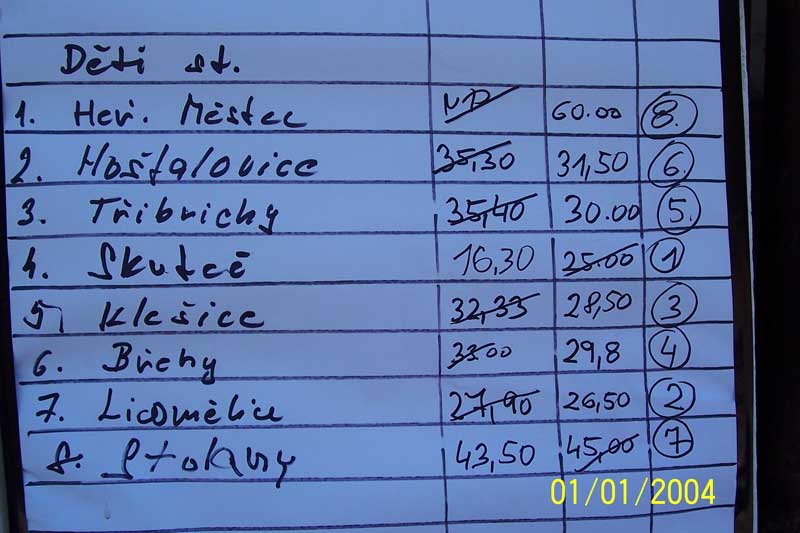 Děti st.
1. Heř. Městec NP 60.00 8.
2. Hošťalovice 35,30 31,50 6.
3. Třibřichy 35,40 30.00 5.
4. Skuteč 16,30 25.00 1
5. Klešice 32,33 28,50 3
6. Břehy 33.00 29,8 4
7. Licomělice 27,90 26,50 2
8. Stokny 43,50 45,00 7
01/01/2004